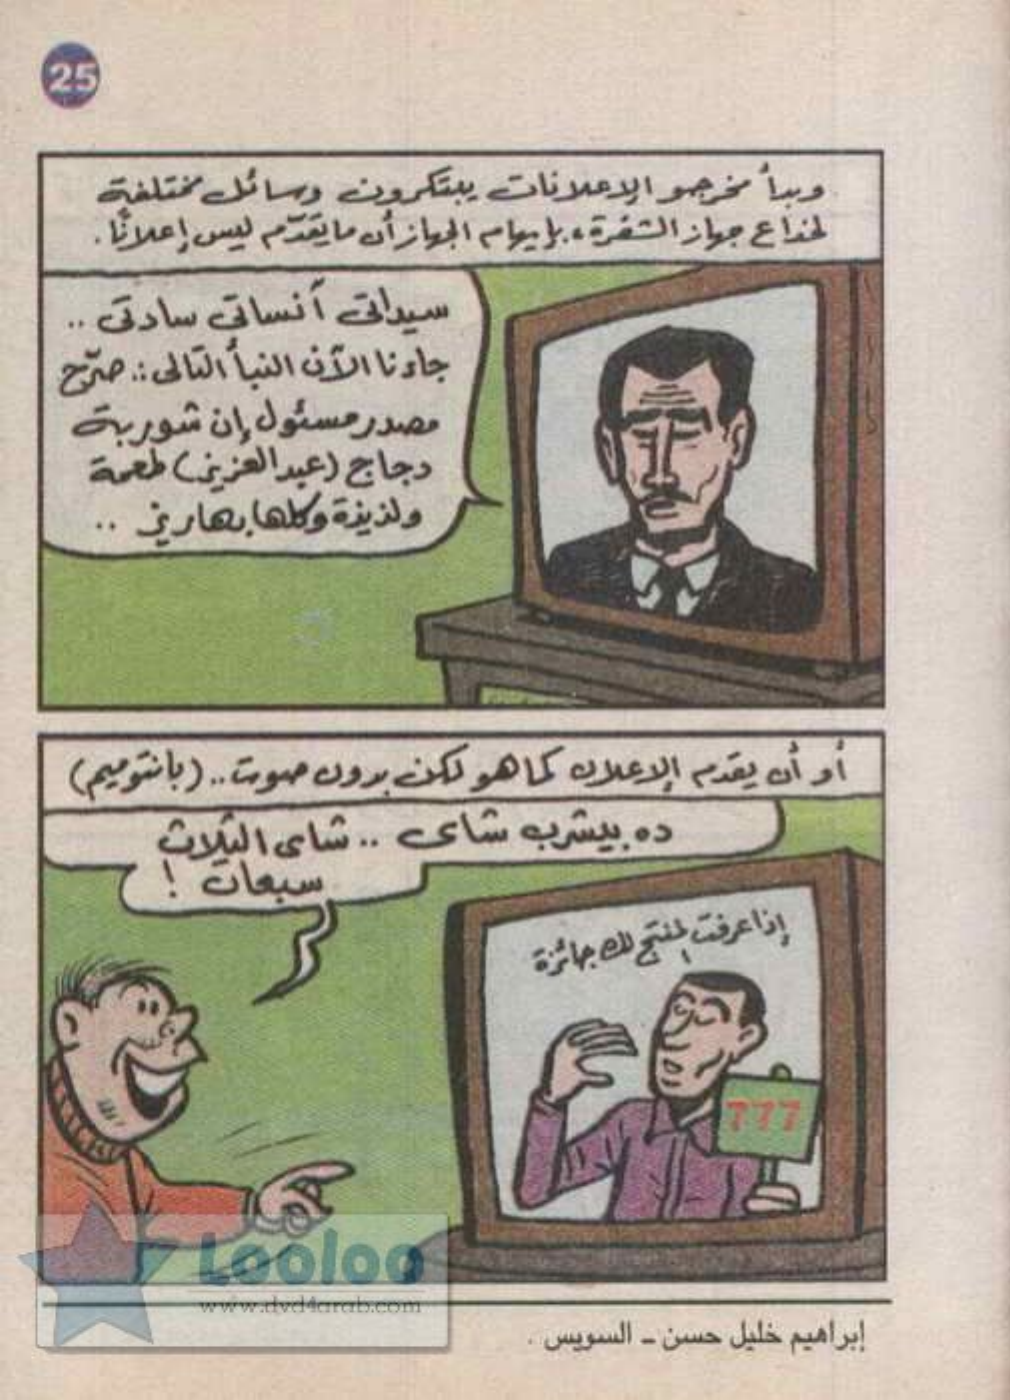 25
وبدأ مخرجو الإعلانات يبتكرون وسائل مختلفة
لخداع جهاز الشفرة، بإيهام الجهاز أن ما يقدّم ليس إعلانًا.
سيداتى آنساتى سادتى ..
جاءنا الآن النبأ التالى :. صرّح
مصدر مسئول إن شوربة
دجاج (عبد العزيز) طعمة
ولذيذة وكلها بهاريز ..
أو أن يقدم الإعلان كما هو لكن بدون صوت .. (بانتوميم)
ده بيشرب شاى .. شاى الثلاث
سبعات !
إذا عرفت المنتج لك جائزة
777
Looloo
www.dvd4arab.com
إبراهيم خليل حسن - السويس .